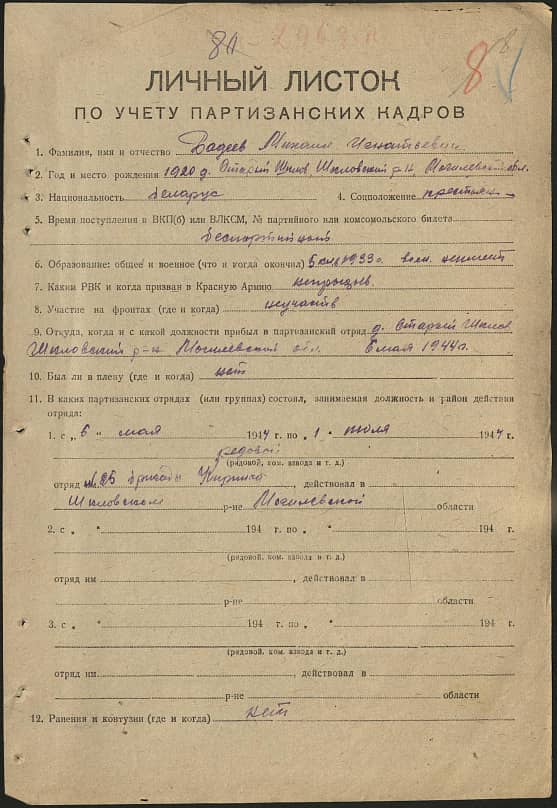 81
8
ЛИЧНЫЙ ЛИСТОК
ПО УЧЕТУ ПАРТИЗАНСКИХ КАДРОВ
1. Фамилия, имя и отчество Михаил Игнатьевич
2. Год и место рождения 1920 д. Старый Шклов, Шкловский р-н, Могилевской обл.
3. Национальность беларус 4. Соцположение крестьян
5. Время поступления в ВКП(б) или ВЛКСМ, № партийного или комсомольского билета
беспартийный
6. Образование: общее и военное (что и когда окончил) 5 кл 1933 г.
7. Каким РВК и когда призван в Красную Армию непризыв.
8. Участие на фронтах (где и когда) неучаств
9. Откуда, когда и с какой должности прибыл в партизанский отряд д. Старый Шклов
Шкловский р-н Могилевской обл. 6 мая 1944 г.
10. Был ли в плену (где и когда) нет
11. В каких партизанских отрядах (или группах) состоял, занимаемая должность и район действия
отряда:
1. с „ 6 " мая 1944 г. по „ 1 " июля 1944 г.
рядовой
(рядовой, ком. взвода и т. д.)
отряд № 25 бригады Кирпича, действовал в
Шкловском р-не Могилевской области
2. с „ " 194 г. по „ " 194 г.
(рядовой, ком. взвода и т. д.)
отряд им , действовал в
р-не области
3. с „ " 194 г. по „ " 194 г.
(рядовой, ком. взвода и т. д.)
отряд им. , действовал в
р-не области
12. Ранения и контузии (где и когда) нет